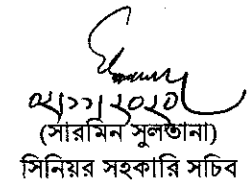 ০২/১১/২০২০
(সারমিন সুলতানা)
সিনিয়র সহকারি সচিব